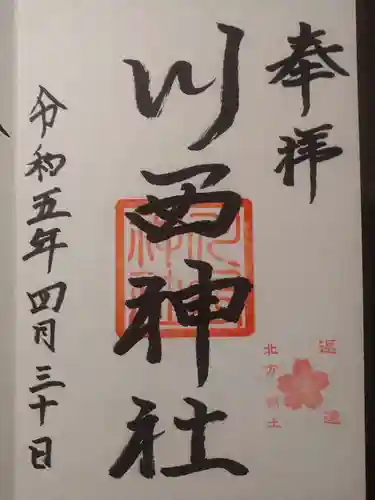 奉拝
川西神社
令和五年四月三十日
北方領土